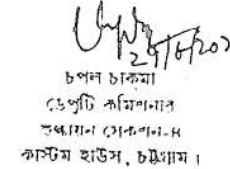 চপল চাকমা
ডেপুটি কমিশনার
শুল্কায়ন সেকশন-৪
কাস্টম হাউস, চট্টগ্রাম।